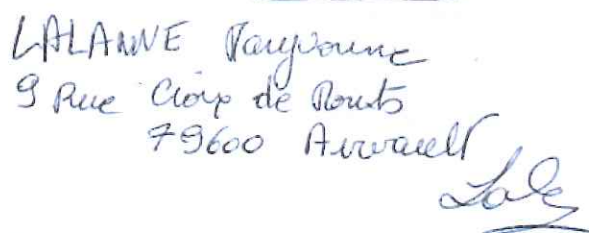 LALANNE Maryvonne
9 Rue Croix de Monts
79600 Airvault